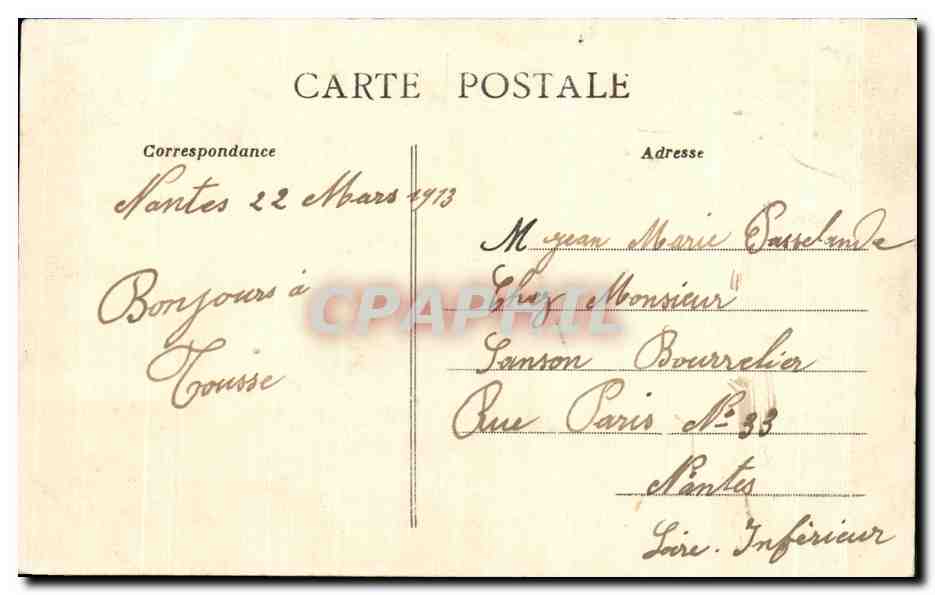 CARTE POSTALE
Correspondance
Adresse
Nantes 22 Mars 1913
Bonjours à
Tousse
M Jean Marie Passelande
Chez Monsieur
Sanson Bourrelier
Rue Paris No 33
Nantes
Loire. Inférieur
CPAPHIL